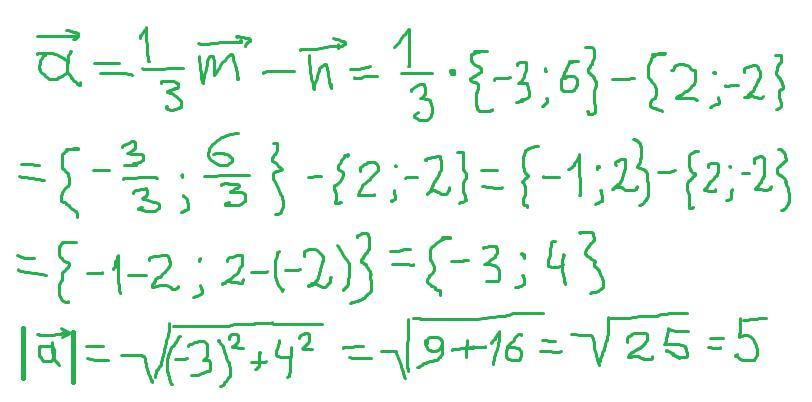 $\vec{a} = \frac{1}{3}\vec{m} - \vec{n} = \frac{1}{3} \cdot \{-3; 6\} - \{2; -2\}$
$= \{-\frac{3}{3}; \frac{6}{3}\} - \{2; -2\} = \{-1; 2\} - \{2; -2\}$
$= \{-1-2; 2-(-2)\} = \{-3; 4\}$
$|\vec{a}| = \sqrt{(-3)^2 + 4^2} = \sqrt{9+16} = \sqrt{25} = 5$